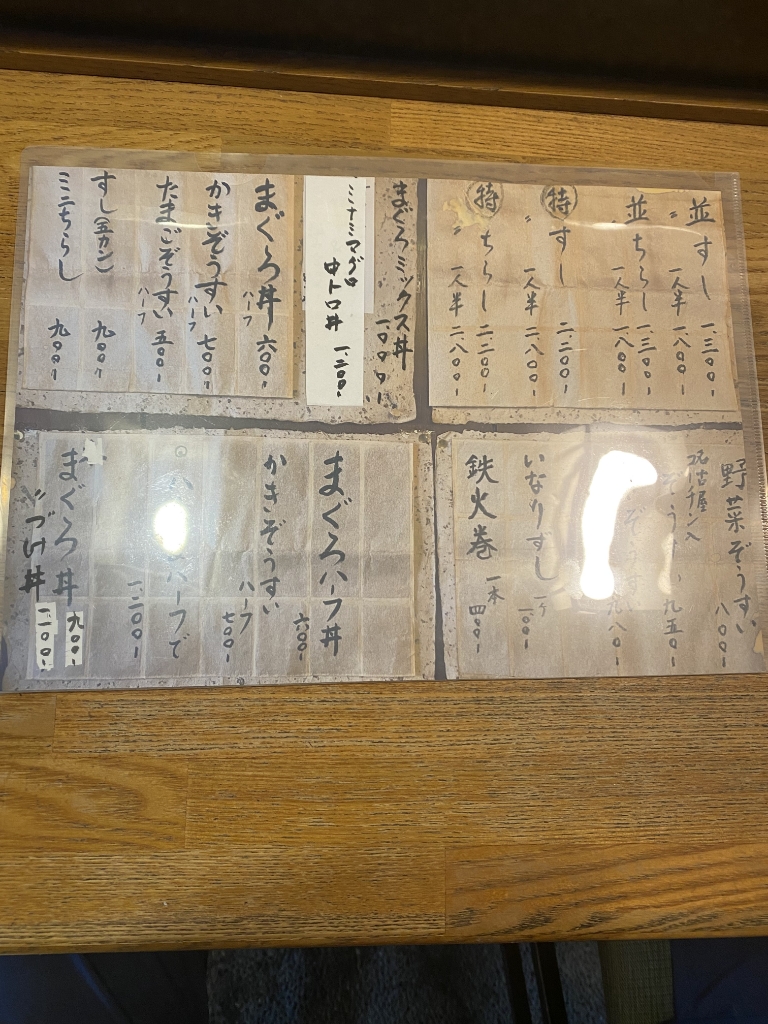 並すし 一、三〇〇-
〃 一人半 一、八〇〇-
並ちらし 一、三〇〇-
〃 一人半 一、八〇〇-
特すし 二、二〇〇-
〃 一人半 二、八〇〇-
特ちらし 二、二〇〇-
〃 一人半 二、八〇〇-
まぐろミックス丼 一、〇〇〇-
ミナミマグロ
中トロ丼 一、二〇〇-
まぐろ丼 ハーフ 六〇〇-
かきぞうすい ハーフ 七〇〇-
たまごぞうすい ハーフ 五〇〇-
すし(五カン) 九〇〇-
ミニちらし 九〇〇-
野菜ぞうすい 八〇〇-
名古屋コーチン入
ぞう 九五〇-
ぞうすい 九八〇-
いなりずし 一ケ 一〇〇-
鉄火巻 一本 四〇〇-
まぐろハーフ丼 六〇〇-
かきぞうすい ハーフ 七〇〇-
ハーフで
一、二〇〇-
まぐろ丼 九〇〇-
〃 づけ丼 一、一〇〇-